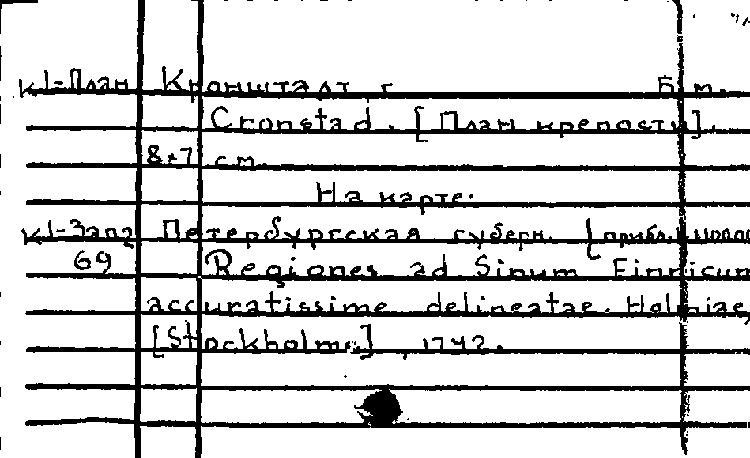 К1-План Кронштадт, г. Б. м.
Cronstad. [План крепости].
8×7 см.
На карте:
К1-Зап2 Петербургская губерн. [прибл.
69 Regiones ad Sinum Finnicum
accuratissime delineatae. Holmiae,
[Stockholm], 1742.